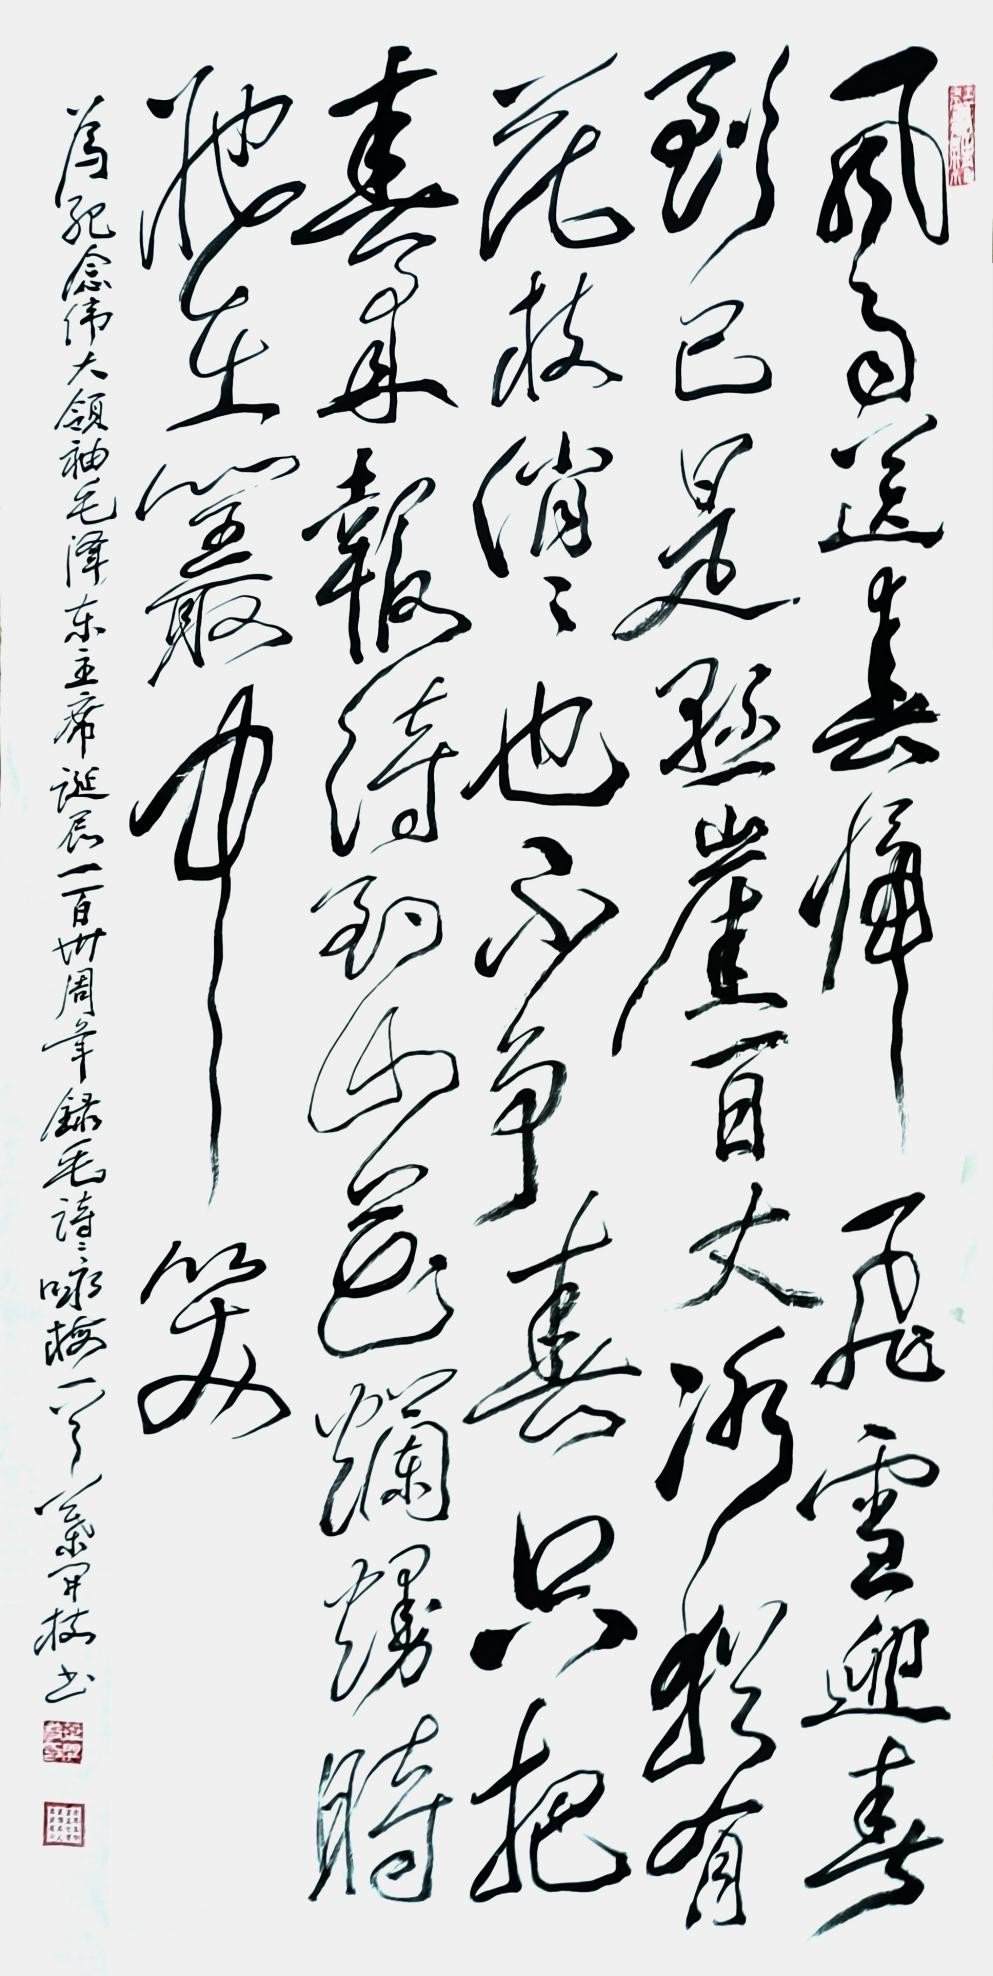 風雨送春歸飛雪迎春
到已是懸崖百丈冰猶有
花枝俏〻也不争春只把
春来報待到山花爛熳時
她在叢中笑
為紀念伟大领袖毛泽东主席诞辰一百卅周年錄毛詩〻詠梅一首